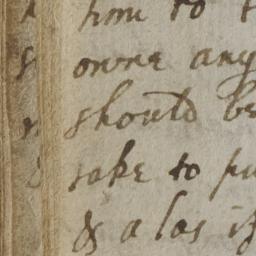 him to
owne any
should be
sake to pu
& alas if